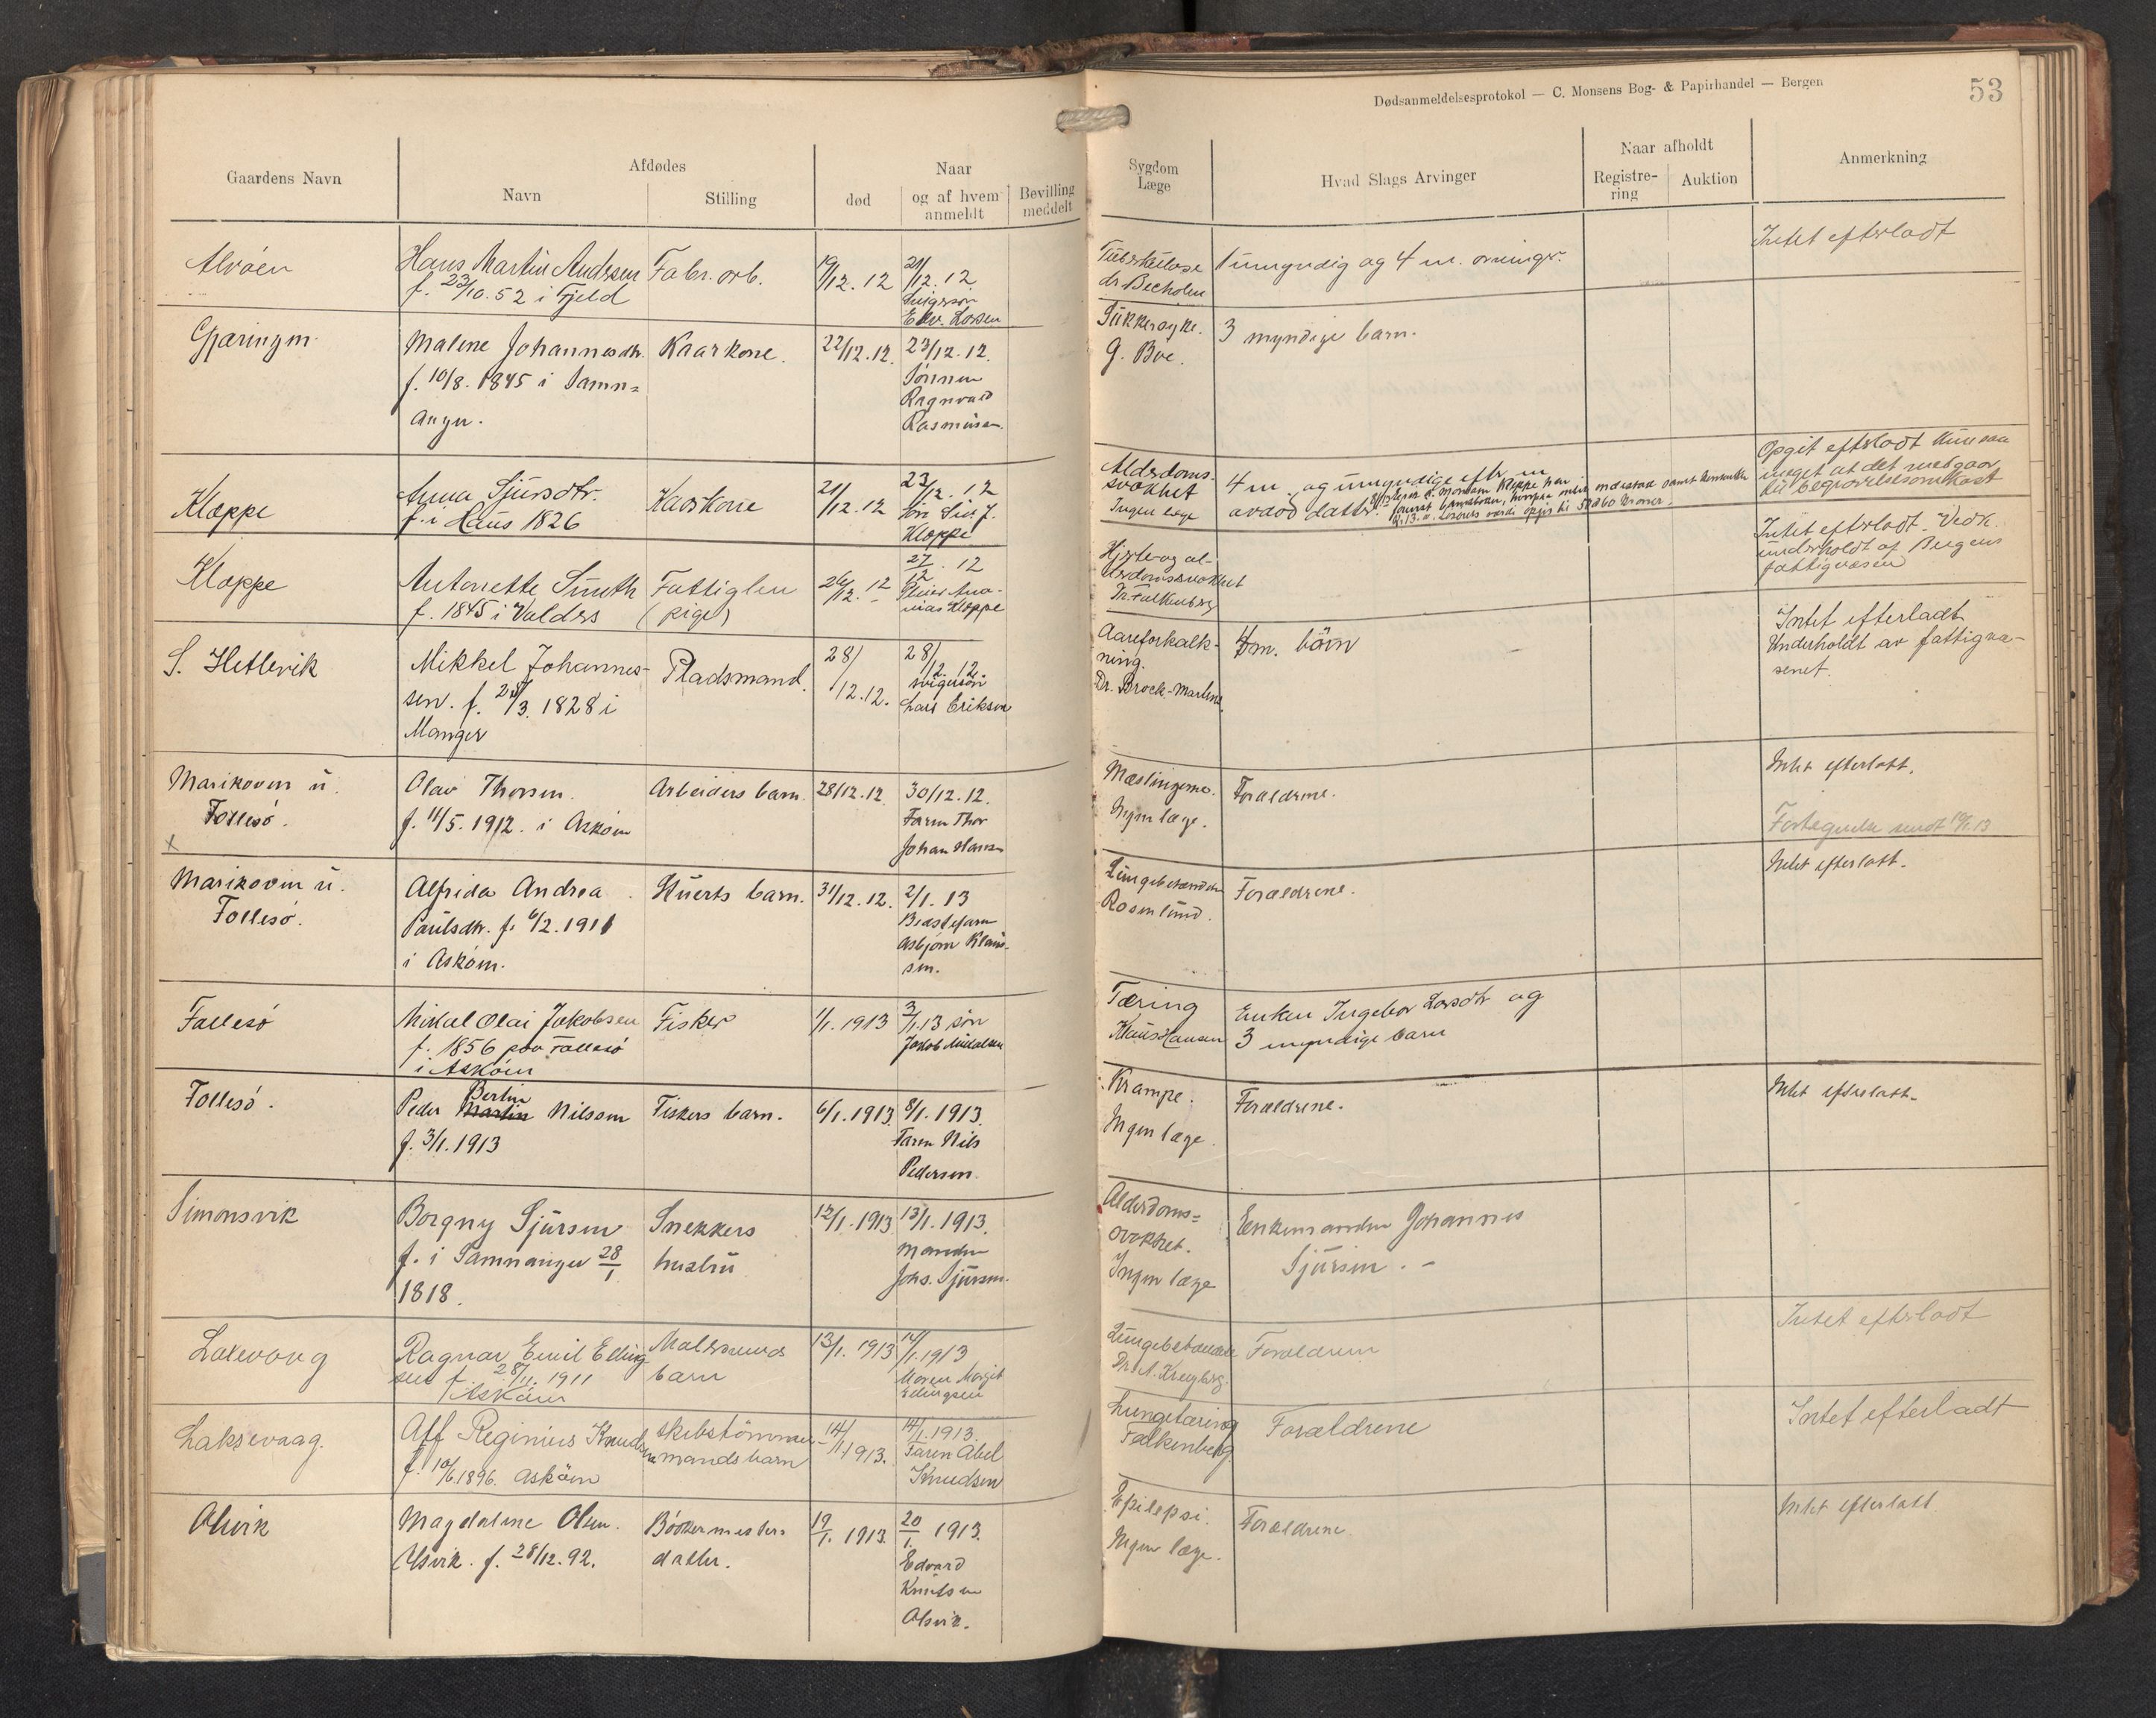 Dødsanmeldelsesprotokol — C. Monsens Bog- & Papirhandel — Bergen
53
Gaardens Navn
Afdødes
Navn
Stilling
Naar
død
og af hvem anmeldt
Bevilling meddelt
Sygdom
Læge
Hvad Slags Arvinger
Naar afholdt
Registrering
Auktion
Anmerkning
Alvøen
Hans Martin Andersen
f. 23/10.52 i Fjeld
Fabr. arb.
19/12.12
21/12.12
Svigersøn
Tuberkulose
1 umyndig og 4 m. arvinger.
Intet efterladt
Malene Johannesdtr.
f. 10/8. 1845 i Samn=
anger.
Kaarkone.
22/12.12.
23/12.12.
Sønnen
Ragnvald
Rasmussen.
Sukkersyke.
G. Boe.
3 myndige barn.
Kleppe
Anna Sjursdtr.
f. i Haus 1826
Kaarkone
21/12.12
23/12.12
Kleppe
Alderdoms-
svakhet
Ingen læge
4 m. og umyndige efter en
avdød datter.
Opgit efterladt kun saa
meget at det medgaar
til begravelsesomkost
Kleppe
Antonette Smith
f. 1845 i Valders
Fattiglem
(pige)
26/12.12
27/12.12
Kleppe
Hjerte og al-
derdomssvakhet
Dr. Falkenberg
Intet efterladt. Vedk.
underholdt af Bergens
fattigvæsen
S. Hetlevik
Mikkel Johannes-
sen. f. 25/3. 1828 i
Manger
Pladsmand.
28/12.12.
28/12.12.
svigersøn
Lars Eriksen
Aareforkalk-
ning.
Dr. Brock-Martens.
4 m. børn
Intet efterladt
Underholdt av fattigvæ-
senet.
Marikoven u.
Follesø.
x
Olav Thorsen.
f. 11/5. 1912. i Askøen
Arbeiders barn.
28/12.12.
30/12.12.
Faren Thor
Johan Hansen
Mæslingerne.
Ingen læge.
Forældrene.
Intet efterlatt.
Marikoven u.
Follesø.
Alfrida Andrea
Paulsdtr. f. 6/2. 1911
i Askøen.
Stuerts barn.
31/12.12.
2/1.13
Bedstefaren
Asbjørn Klaus-
sen.
Rosenlund.
Forældrene.
Intet efterlatt.
Follesø
Mikal Olai Jakobsen
f. 1856 paa Follesø
i Askøen
Fisker
1/1.1913
3/1.13 søn
Jakob Mikalsen
Tæring
Klaus Hansen
Enken Ingebor Larsdtr og
3 myndige barn
Follesø.
Bertin
Peder Martin Nilssen
f. 3/1.1913
Fiskers barn.
6/1.1913.
8/1.1913.
Faren Nils
Pedersen.
Krampe.
Ingen læge.
Forældrene.
Intet efterlatt.
Simonsvik
Borgny Sjursen
f. i Samnanger 28/1
1818.
Snekkers
hustru
12/1.1913
13/1.1913.
Manden
Johs. Sjursen.
Alderdoms=
svakhet.
Ingen læge
Enkemanden Johannes
Sjursen. -
Laxevaag
Ragnar Emil Elling
sen f. 28/11. 1911
i Askøen
Malersvends
barn
13/1. 1913
14/1.1913
Moren Margit
Ellingsen
Lungebetændelse
Dr. A. Kreyberg.
Forældrene
Intet efterladt
Laksevaag.
Alf Reginius Knudsen
f. 10/6.1896. Askøen
skibstømmer-
mands barn
14/1.1913.
14/1.1913.
Faren Abel
Knudsen
Lungetæring
Falkenberg
Forældrene
Intet efterladt
Olsvik
Magdalene Olsen.
Olsvik. f. 28/12.92.
Bødkermesters
datter.
19/1. 1913.
20/1. 1913.
Edvard
Knutsen
Olsvik.
Epilepsi.
Ingen læge.
Forældrene.
Intet efterlatt